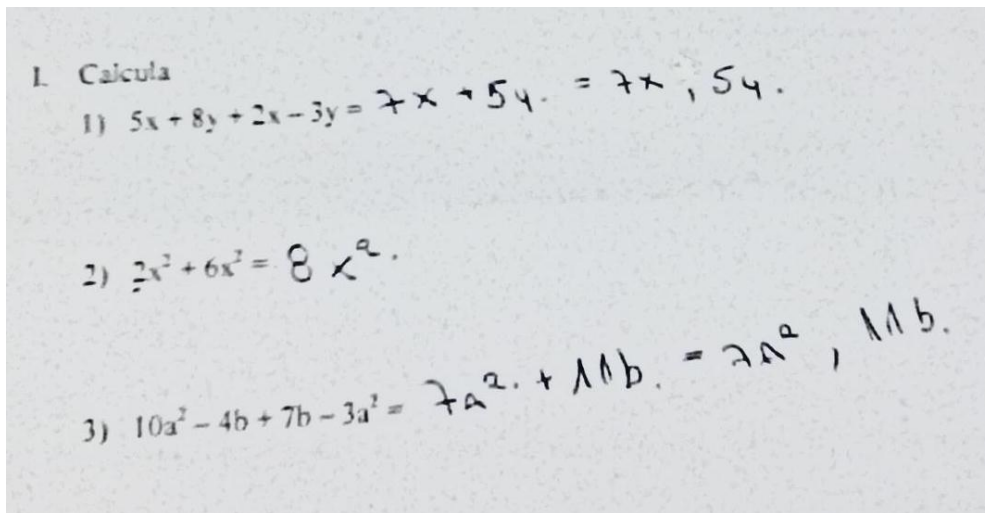 I. Calcula
1) 5x + 8y + 2x – 3y = 7x + 5y. = 7x , 5y.
2) 2x² + 6x² = 8x².
3) 10a² – 4b + 7b – 3a² = 7a². + 11b. = 7a² , 11b.